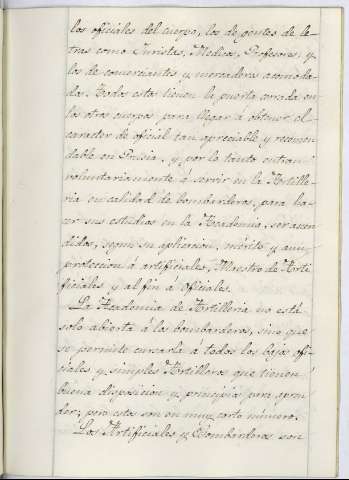 los oficiales del cuerpo, los de gentes de le-
tras como Juristas, Medicos, Profesores, y
los de comerciantes y mercaderes acomoda-
dos. Todos estos tienen la puerta cerrada en
los otros cuerpos para llegar á obtener el
caracter de oficial tan apreciable y recomen-
dable en Prusia, y por lo tanto entran
voluntariamente á servir en la Artille-
ria en calidad de bombarderos, para ha-
cer sus estudios en la Academia, ser ascen-
didos, segun su aplicacion, mérito y aun
proteccion á artificiales, Maestro de Arti-
ficiales y al fin á Oficiales.
La Academia de Artilleria no está
solo abierta á los bombarderos, sino que
se permite cursarla á todos los bajos ofi-
ciales y simples Artilleros que tienen
buena disposicion y principios para apren-
der; pero estos son en muy corto número.
Los Artificiales y Bombarderos son